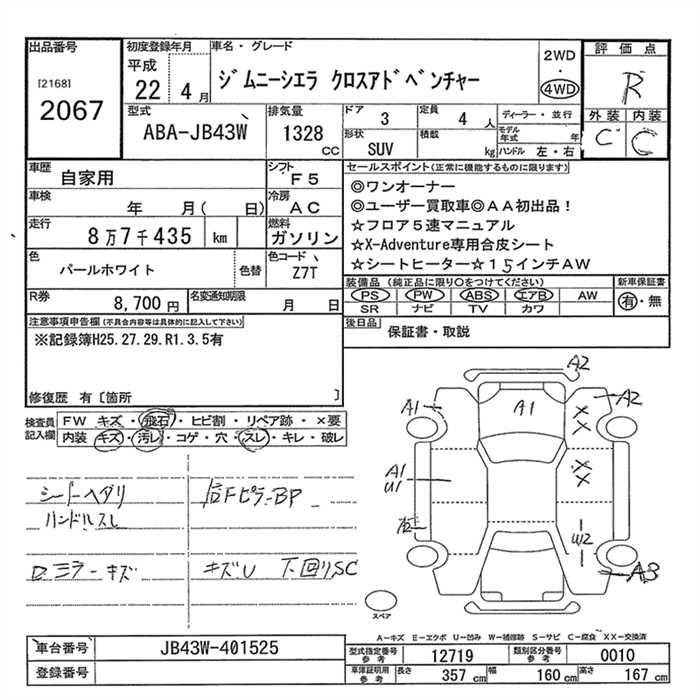 出品番号
[2168]
2067
初度登録年月
平成
22年 4月
車名・グレード
ジムニーシエラ クロスアドベンチャー
2WD
・
4WD
評価点
R
外装 内装
C C
型式
ABA-JB43W
排気量
1328
CC
ドア
3
定員
4人
形状
SUV
積載
kg
ディーラー・並行
モデル年式 年
ハンドル 左・右
車歴
自家用
シフト
F5
車検
年 月( 日)
冷房
AC
走行
8万7千435 km
燃料
ガソリン
色
パールホワイト
色替
色コード
Z7T
R券
8,700円
名変通知期限
月 日
セールスポイント(正常に機能するものに限ります)
◎ワンオーナー
◎ユーザー買取車◎AA初出品!
☆フロア5速マニュアル
☆X-Adventure専用合皮シート
☆シートヒーター☆15インチAW
装備品(純正品に限り○をつけてください)
新車保証書
PS PW ABS エアB AW
SR ナビ TV カワ
有・無
後日品
保証書・取説
注意事項申告欄(不具合内容等は具体的に記入して下さい)
※記録簿H25.27.29.R1.3.5有
修復歴 有〔箇所 〕
検査員記入欄
FW キズ・飛石・ヒビ割・リペア跡・×要
内装 キズ・汚レ・コゲ・穴・スレ・キレ・破レ
シートヘタリ
ハンドルスレ
ミラーキズ
FピラーBP
キズU 下回りSC
A2
A1
A1
A2
XX
A1
U1
XX
W2
A3
スペア
A-キズ E-エクボ U-凹み W-補修跡 S-サビ C-腐食 XX-交換済
車台番号
JB43W-401525
登録番号
型式指定番号 参考
12719
類別区分番号 参考
0010
車庫証明用 参考
長さ 357 cm 幅 160 cm 高さ 167 cm